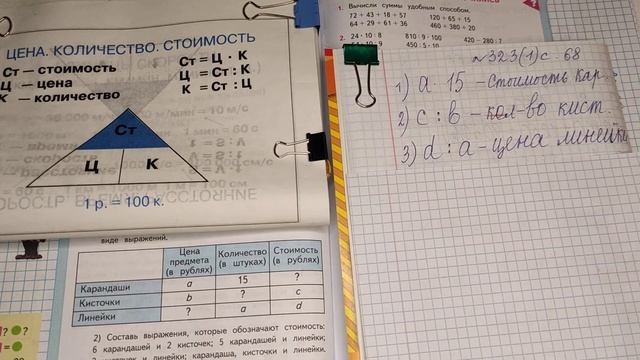 1. Вычисли суммы удобным способом.
72 + 43 + 18 + 57 120 + 65 + 15
64 + 29 + 61 + 36 460 + 380 + 20
2. 24 · 10 : 8 810 : 9 · 100 420 − 280 : 7
450 : 5 · 10
ЦЕНА. КОЛИЧЕСТВО. СТОИМОСТЬ
Ст — стоимость Ст = Ц · К
Ц — цена Ц = Ст : К
К — количество К = Ст : Ц
Ст
Ц К
1 р. = 100 к.
№ 323(1) с. 68
1) a · 15 – стоимость кар.
2) c : b – кол-во кист.
3) d : a – цена линейки
виде выражений.
Цена предмета (в рублях) Количество (в штуках) Стоимость (в рублях)
Карандаши a 15 ?
Кисточки b ? c
Линейки ? a d
2) Составь выражения, которые обозначают стоимость:
6 карандашей и 2 кисточек; 5 карандашей и линейки;
и линейки; карандаша, кисточки и линейки.